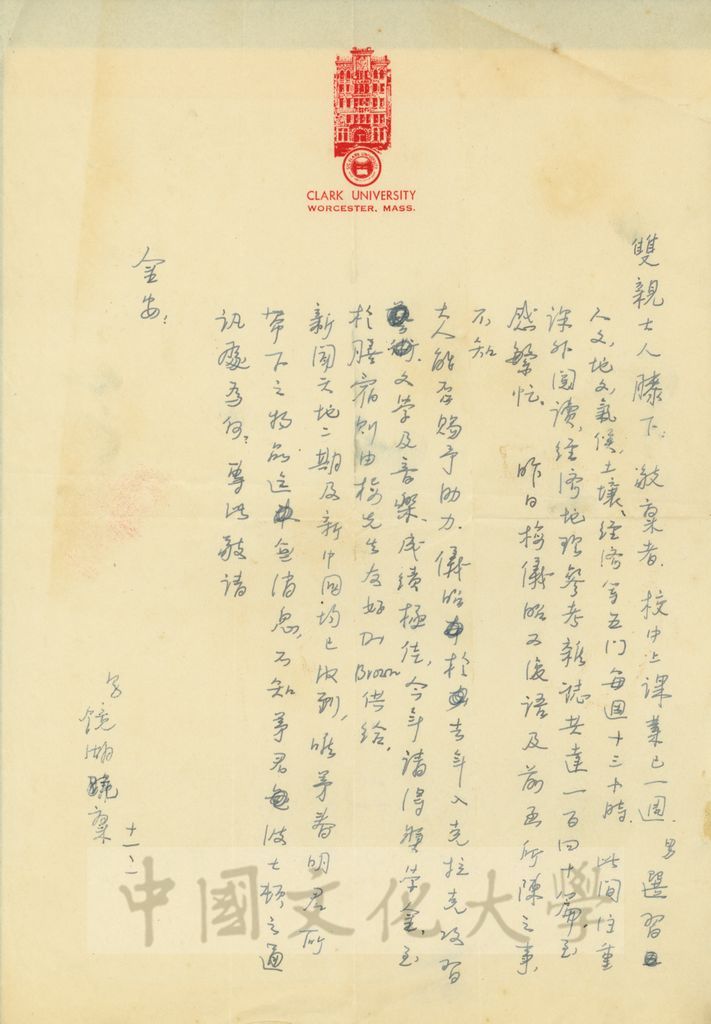 CLARK UNIVERSITY
WORCESTER, MASS.
雙親大人膝下敬稟者校中上課業已一週男選習
人文地文氣候土壤經濟等五門每週十三小時此間注重
課外閱讀經濟地理參考雜誌共達一百四十篇至
感繁忙。昨日梅儀昭又復語及前函所陳之事
不知
大人能否賜予助力。儀昭於去年入克拉克攻習
文學及音樂成績極佳,今年請得獎學金,至
於膳宿則由梅先生友好Dr Brown供給,
新國天地二期及新中國均已收到,唯茅春明君所
帶下之物品迄無消息,不知茅君波士頓之通
訊處為何?專此敬請
金安:
鏡湖 稟
十一、二
中國文化大學